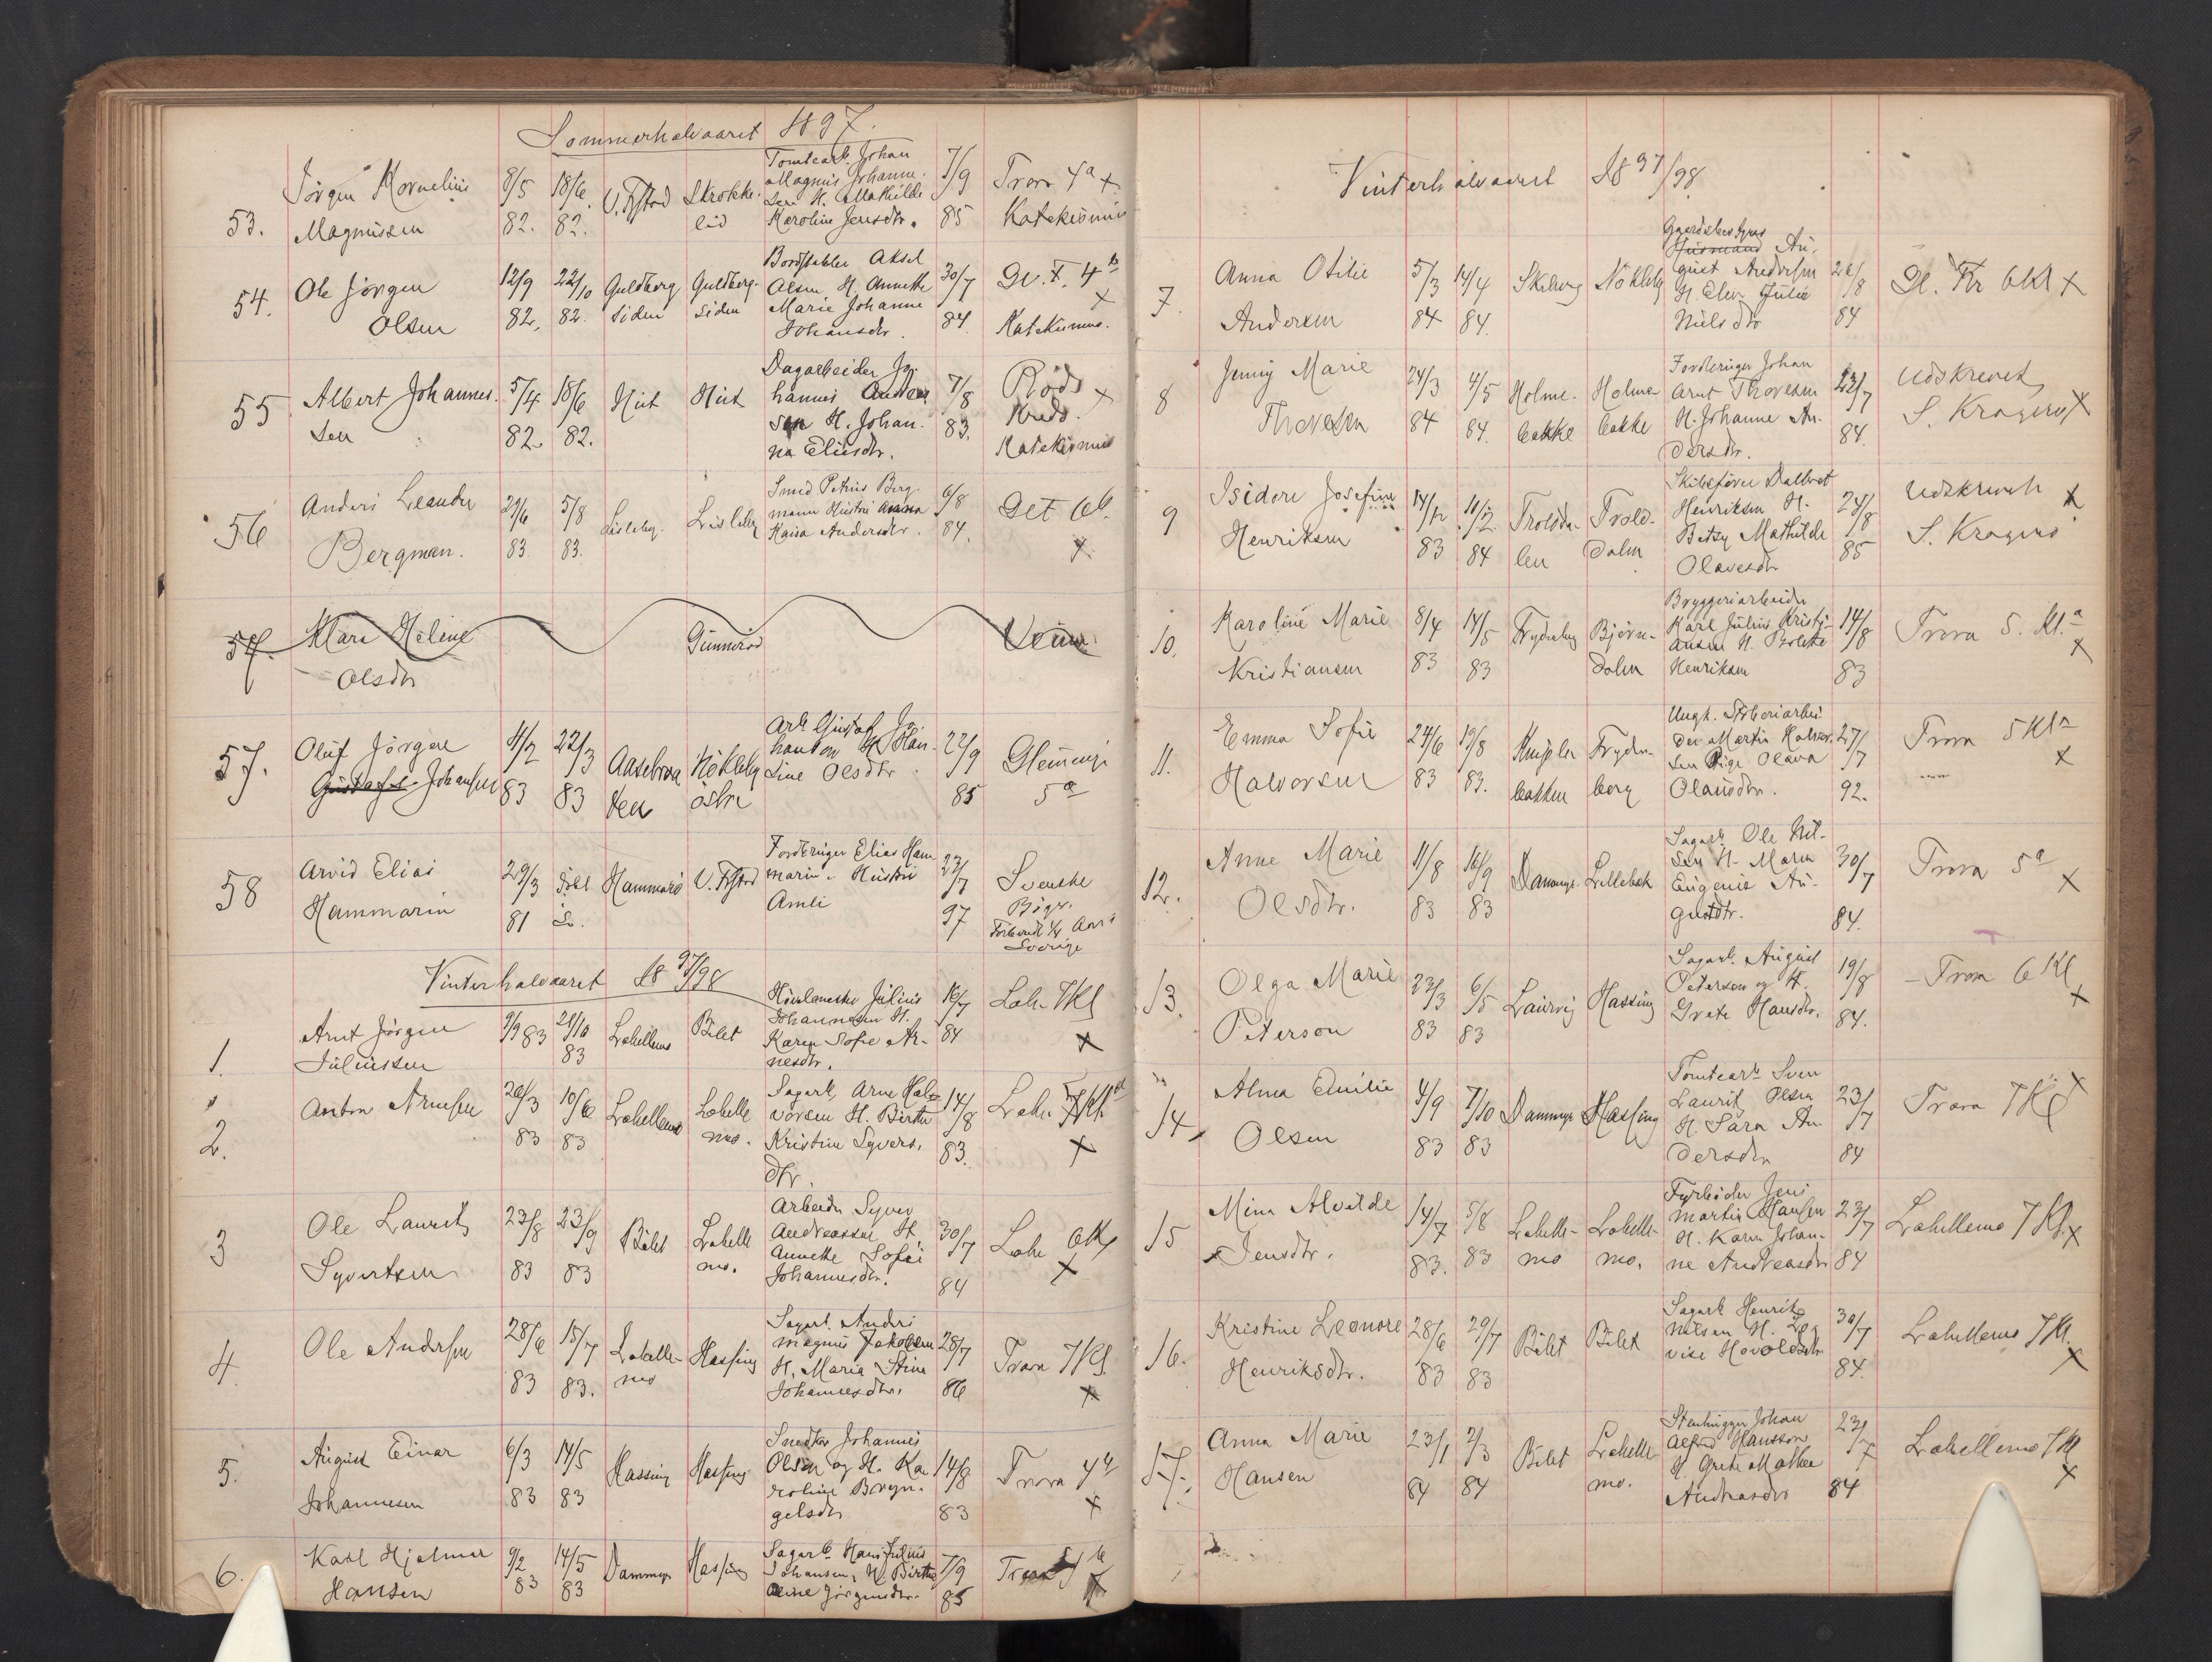 Sommerhalvaaret 1897.
53. Jörgen Kornelius Magnussen 8/5 82. 18/6 82. V. Fjstad Skrokke-
lid Tomtearb. Johan
Magnus Johanne-
sen H. Mathilde
Karoline Jensdtr. 7/9 85 Trora 4a x
Katekismus
54. Ole Jörgen
Olsen 12/9 82. 22/10 82. Guldberg
siden Guldberg-
siden Bordstabler Aksel
Olsen H. Annette
Marie Johanne
Johansdtr. 30/7 84. Gl. F. 4b x
Katekismus.
55 Albert Johannes-
sen 5/4 82. 18/6 82. Hut Hut Dagarbeider Jo-
hannes Ander
sen H. Johan-
na Eliesdtr. 7/8 83. Röds x
Kreds.
Katekismus
56 Anders Leander
Bergman. 29/6 83. 5/8 83. Lisleby. Lisleby Smed Petrus Berg-
mann Hustru Anna
Kaisa Andersdtr. 6/8 84. Get 6b.
x
57. Klara Heline
Olsdtr Gunneröd Venn.
57. Oluf Jörgen
Gustafsl. Johansen 4/2 83 22/3 83 Aasebraa
ten Nökleby
östre Arb. Gustaf Jo-
hansen H. Han-
sine Olsdtr. 22/9 85 Glemminge
5a
58 Arvid Elias
Hammarin 29/3 81 Föbl
S. Hammarö V. Fjstad Fordringer Elias Ham
marin. Hustru
Amli 23/7 97 Svenske
Böger.
Sverige
Vinterhalvaaret 1897/98
1. Arnt Jörgen
Juliussen 9/9 83 21/10 83 Lahellemo Bilet Hövlemester Julius
Johannesen H.
Karen Sofie Ar-
nesdtr. 16/7 84 Lahe 7Kl
x
2. Anton Arnesen 20/3 83 10/6 83 Lahellemo Lahelle
mo. Sagarb. Arne Hal-
vorsen H. Birthe
Kristine Syvers-
dtr. 14/8 83. Lahe 7Kl
x
3 Ole Lauritz
Syvertsen 23/8 83 23/9 83 Bilet Lahelle
mo. Arbeider Syver
Andreassen H
Annette Sofie
Johannesdtr. 30/7 84 Lahe 6Kl
x
4. Ole Andersen 28/6 83 15/7 83. Lahelle-
mo Hassing Sagarb. Anders
Magnus Jakobsen
H. Maria Stina
Johannesdtr. 28/7 86 Trara 7Kl.
x
5. August Einar
Johannesen 6/3 83 14/5 83 Hassing Hassing Snedker Johannes
Olsen og H. Ka
roline Bryn-
gelsdtr 14/8 83 Trora 4b
x
6. Karl Hjalmar
Hansen 9/2 83 14/5 83 Dammyr Hassing Sagarb. Hans Julius
Johansen, H. Birthe
Oline Jörgensdtr. 7/9 85 Trora
Vinterhalvaaret 1897/98
7. Anna Otilie
Andersen 5/3 84 14/4 84. Skiberg Nökleby Gaardsbestyrer
Husmand Au-
gust Andersen
H. Elen Julie
Nielsdtr 26/8 84 Gl. Kr 6Kl x
8 Jenny Marie
Thoresen 24/3 84 4/5 84. Holme-
bakke Holme-
bakke Fordringer Johan
Arnt Thoresen
H. Johanne An-
dersdtr. 23/7 84. Udskrevet
S. Kragerö x
9 Isidore Josefine
Henriksen 14/12 83 10/2 84 Troldda-
len Trold-
dalen Skibsförer Dalbert
Henriksen H.
Betzy Mathilde
Olavesdtr 24/8 85 Udskreven x
S. Kragerö
10. Karoline Marie
Kristiansen 8/4 83 14/5 83 Frydenberg Björn-
dalen Bryggeriarbeider
Karl Julius Kristi-
ansen H. Bolette
Henriksen 14/8 83 Trora 5. Kl.a
x
11. Emma Sofie
Halvorsen 24/6 83 19/8 83. Knipler
bakken Fryden-
berg Ungk. Störberiarbei
der Martin Halvor-
sen Pige Olava
Olausdtr. 27/7 92. Trora 5Kla
x
12. Anne Marie
Olsdtr. 11/8 83 16/9 83 Dammyr Lillebæk Sagarb. Ole Nil-
sen H. Maren
Eugenie Au-
gustdtr. 30/7 84. Trora 5a
x
13. Olga Marie
Peterson 23/3 83 6/5 83 Laurvig Hassing Sagarb. August
Peterson og H.
Grete Hansdtr. 19/8 84. Trora 6Kl
x
14. Alma Emilie
Olsen 4/9 83 7/10 83 Dammyr Hassing Tomtearb Sven
Laurits Olsen
H. Sara An-
dersdtr 23/7 84 Trara 7Kl x
15 Mina Alvilde
Jensdtr. 14/7 83. 5/8 83 Lahelle-
mo Lahelle-
mo. Fyrböder Jens
Martin Hansen
H. Karen Johan-
ne Andreasdtr 23/7 84 Lahellemo 7Kl. x
16. Kristine Leonore
Henriksdtr. 28/6 83 29/7 83 Bilet Bilet Sagarb Henrik
Nilsen H. Lo
vise Havoldsdtr 30/7 84. Lahellemo 7Kl.
x
17. Anna Marie
Hansen 23/1 84 2/3 84 Bilet Lahelle-
mo. Stenhugger Johan
Alfred Hansson
H. Grete Mathea
Andreasdtr 23/7 84 Lahellemo 7Kl
x